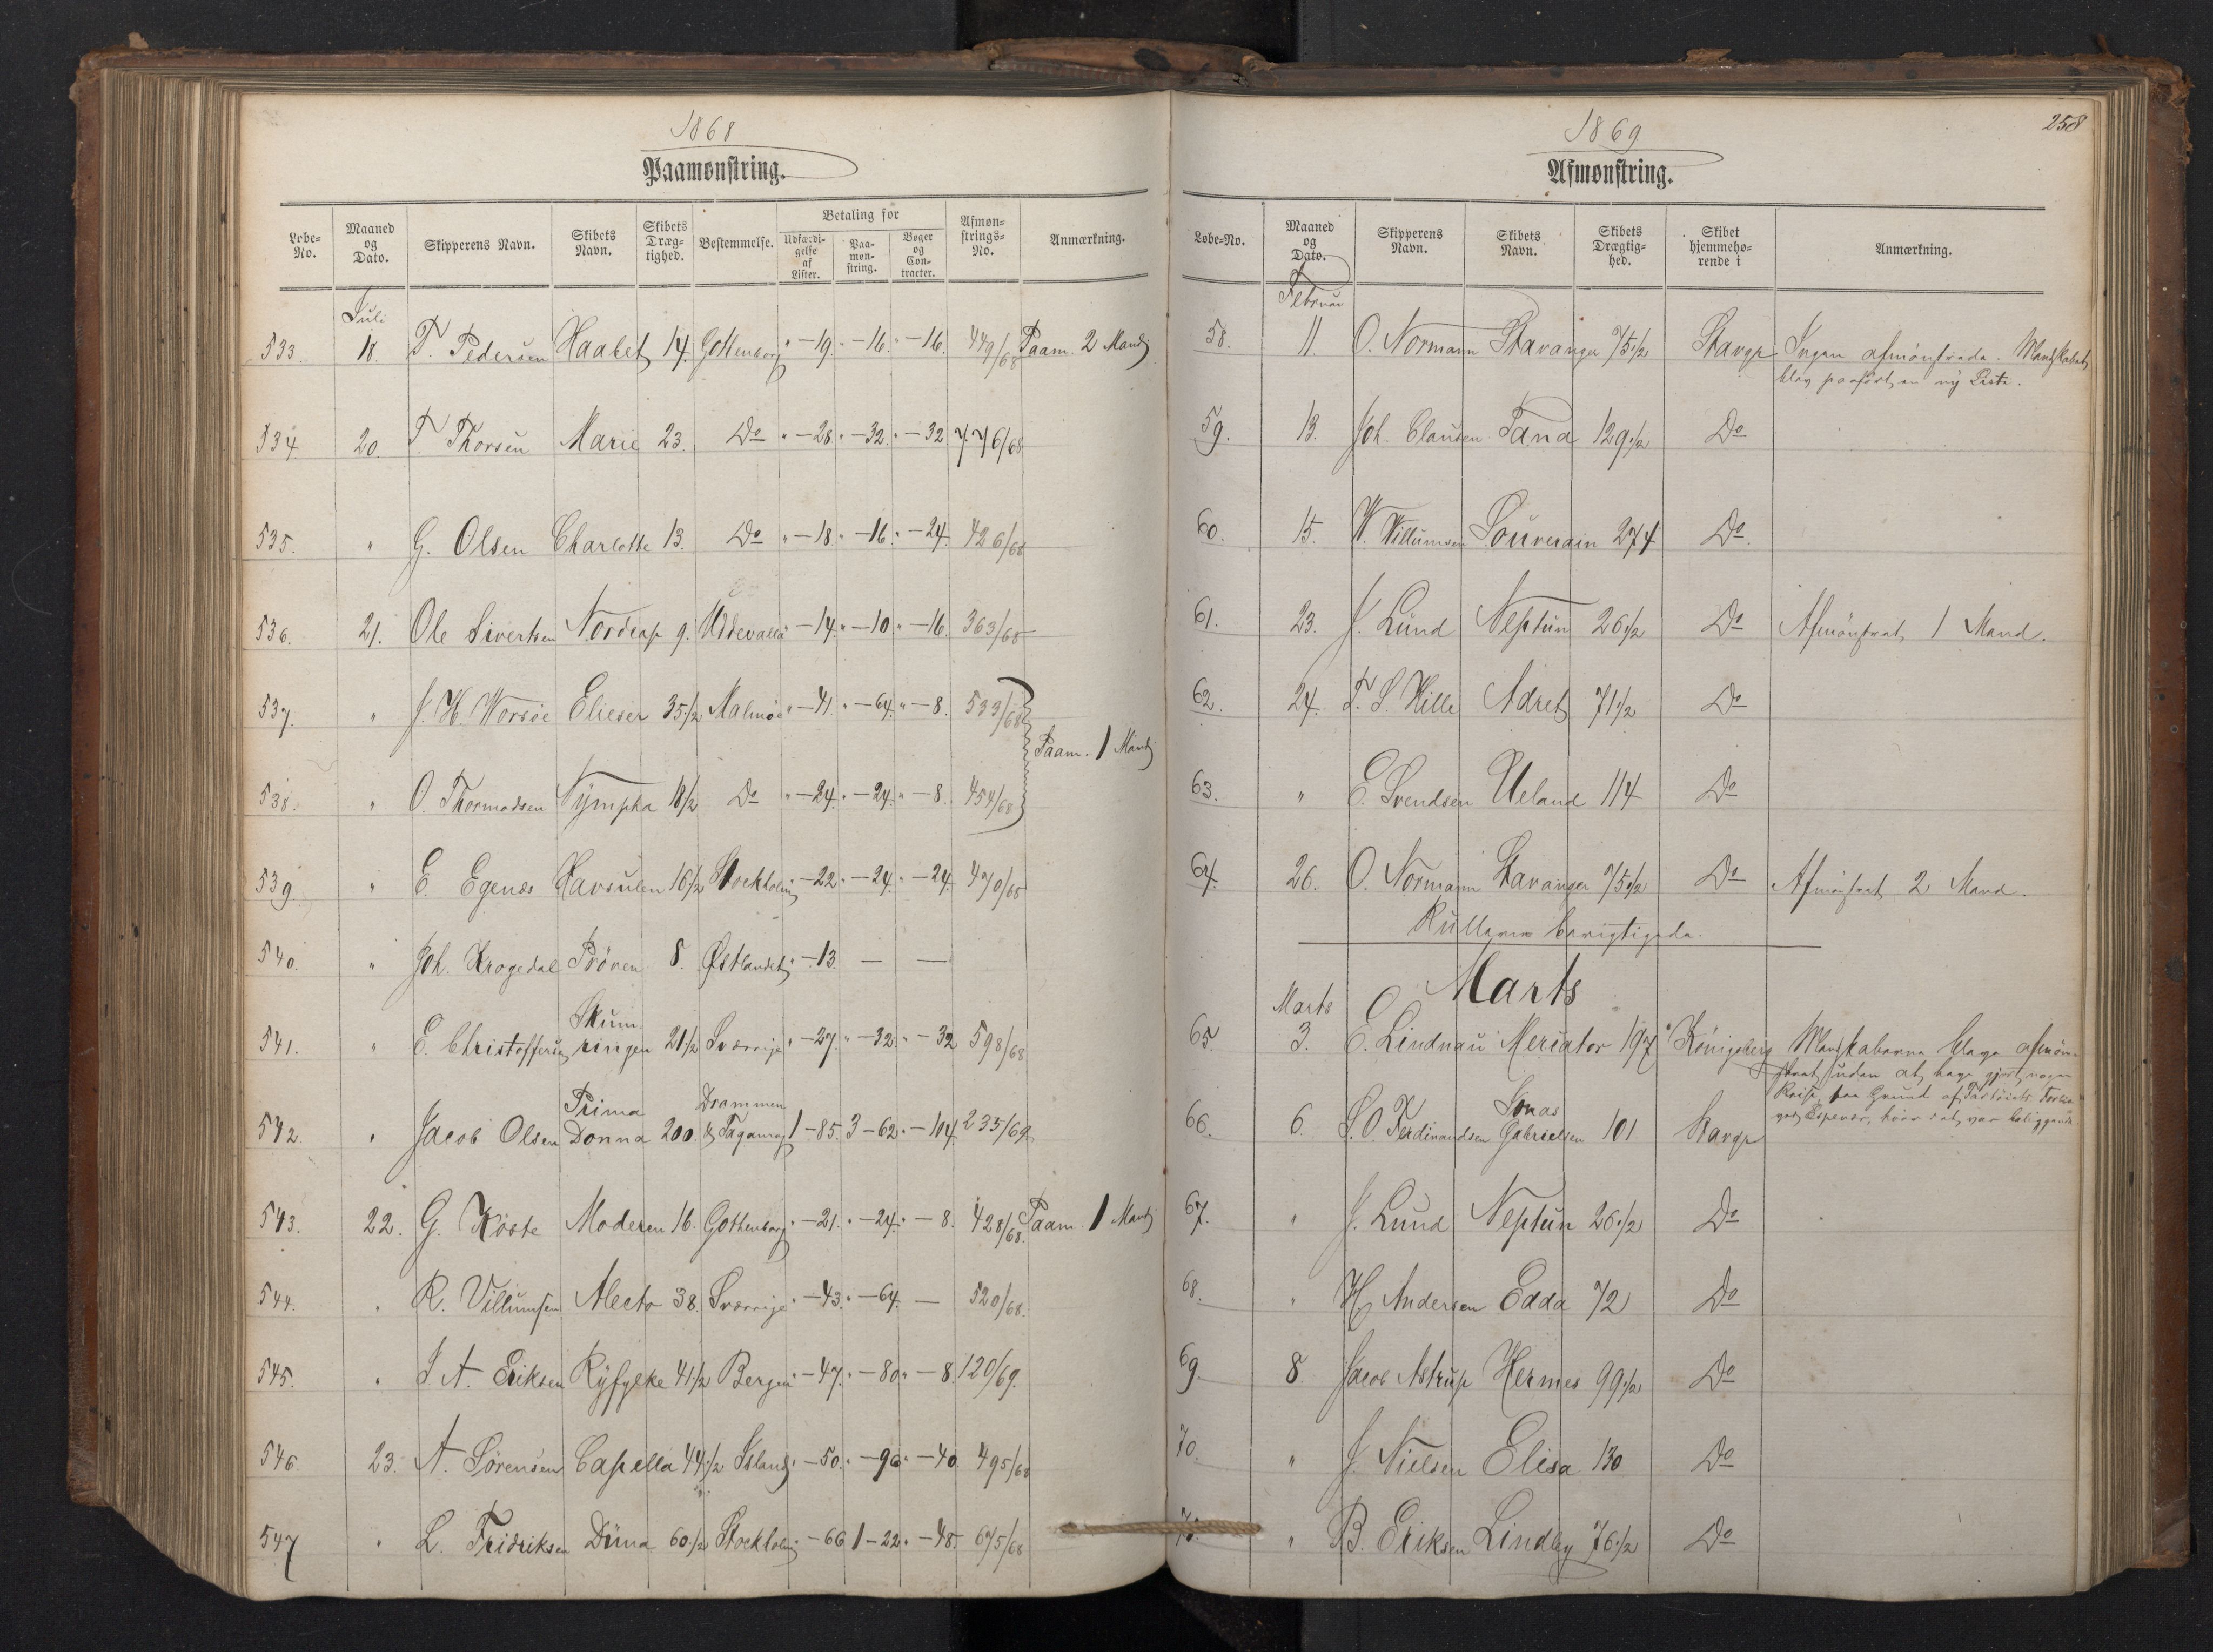 1868
Paamønstring.
Løbe-No. Maaned og Dato. Skipperens Navn. Skibets Navn. Skibets Dræg-tighed. Bestemmelse. Betaling for Udfærdi-gelse af Lister. Paa-møn-string. Bøger og Con-tracter. Afmøn-strings-No. Anmærkning.
Juli
533 18. T. Pedersen Haabet 14. Gottenborg " - 19. " - 16. " - 16. 449/68 Paam. 2 Mand
534. 20. T. Thorsen Marie 23. Do " - 28. " - 32. " - 32 776/68
535. " G. Olsen Charlotte 13. Do " - 18. " - 16. " - 24. 426/68
536. 21. Ole Sivertsen Nordcap 9. Uddevalla " - 14. " - 10. " - 16. 363/68
537. " J. H. Worsøe Elieser 35 1/2 Malmøe " - 41. " - 64. " - 8. 533/68
Paam. 1 Mand
538. " O. Thormodsen Nÿmpha 18 1/2 Do " - 24. " - 24. " - 8. 454/68
539. " E. Egenæs Havsulen 16 1/2 Stockholm " - 22. " - 24. " - 24. 470/68
540. " Joh. Krogedal Prøven 8. Østlandet " - 13. - -
541. " E. Christoffersen Skumringen 21 1/2 Sverrige " - 27. " - 32. " - 32 598/68
542. " Jacob Olsen Prima Donna 200. Drammen & Taganrog 1 - 85. 3 - 62. " - 104. 235/69
543. 22. G. Köste Moderen 16. Gothenborg " - 21. " - 24. " - 8. 428/68. Paam. 1 Mand
544. " R. Villumsen Alecto 38. Sverrige " - 43. " - 64. - 520/68.
545. " J. A. Eriksen Rÿfylke 41 1/2 Bergen " - 47. " - 80. " - 8. 120/69.
546. 23. A. Sørensen Capella 44 1/2 Island " - 50. " - 96. " - 40. 495/68
547 " L. Fridriksen Düna 60 1/2 Stockholm - 66 1 - 22. " - 48. 675/68
1869
258
Afmønstring.
Løbe-No. Maaned og Dato. Skipperens Navn. Skibets Navn. Skibets Drægtig-hed. Skibet hjemmehø-rende i Anmærkning.
Februar
58. 11. O. Normann Stavanger 75 1/2 Stavgr Ingen afmönstrede. Mandskabet
blev paaført en ny Liste.
59. 13. Joh. Clausen Tana 129 1/2 Do
60. 15. W. Willumsen Souverain 274 Do.
61. 23. J. Lund Neptun 26 1/2 Do Afmönstret 1 Mand.
62. 24. T. S. Hille Adret 71 1/2 Do
63. " E. Svendsen Ueland 114 Do
64. 26. O. Normann Stavanger 75 1/2 Do Afmönstret 2 Mand.
Rullerne berigtigede.
Marts
Marts
65. 3. E. Lindnau Meriator 197 Königsberg Mandskaberne bleve afmön-
stret uden at have gjort nogen
Reise paa Grund af Fartöiets Forlis
ved Espevær, hvor det var beliggende
66. 6. S. O. Ferdinandsen Jonas Gabrielsen 101 Stavgr
67. " J. Lund Neptun 26 1/2 Do
68. " H. Andersen Edda 72 Do
69. 8. Jacob Astrup Hermes 99 1/2 Do
70. " J. Nielsen Elisa 130 Do
" B. Eriksen Lindby 76 1/2 Do